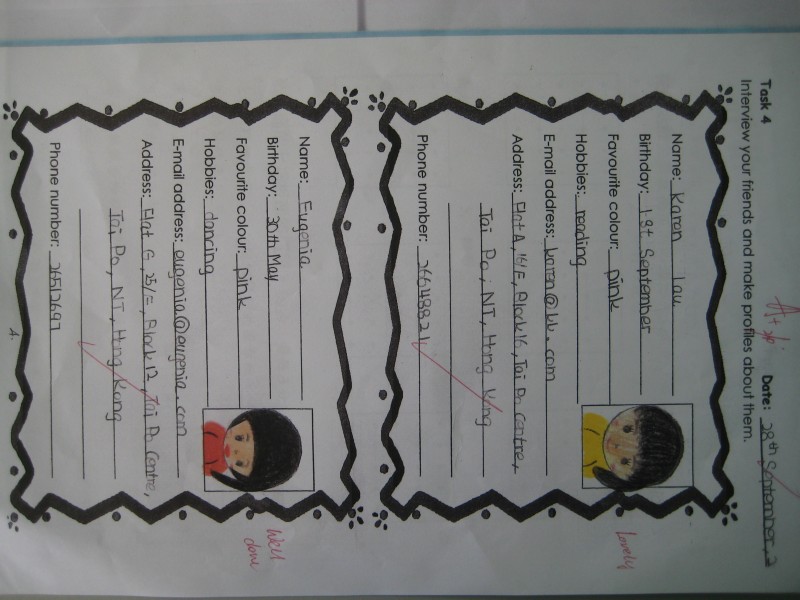 Task 4
Date: 28th September, 2
Interview your friends and make profiles about them.
A+
Name: Karen Lau
Birthday: 1st September
Favourite colour: pink
Hobbies: reading
E-mail address: karen@kk.com
Address: Flat A, 16/F, Block 16, Tai Po Centre,
Tai Po, NT, Hong Kong
Phone number: 26648821
Lovely
Name: Eugenia
Birthday: 30th May
Favourite colour: pink
Hobbies: dancing
E-mail address: eugenia@eugenia.com
Address: Flat G, 25/F, Block 12, Tai Po Centre,
Tai Po, NT, Hong Kong
Phone number: 26517697
Well
done
4.